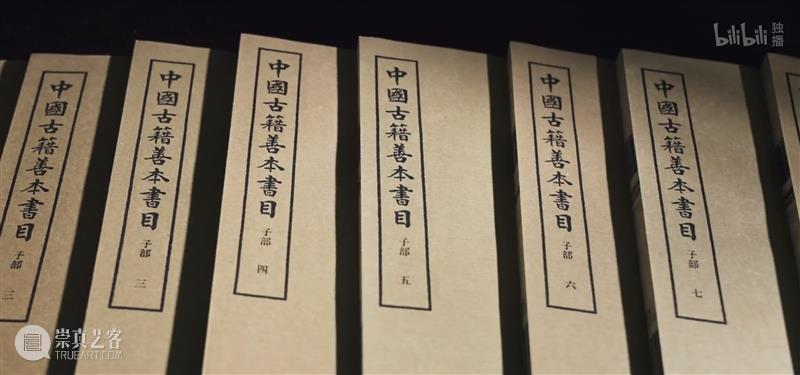 中國古籍善本書目 子部
中國古籍善本書目 子部 三
中國古籍善本書目 子部 四
中國古籍善本書目 子部 五
中國古籍善本書目 子部 六
中國古籍善本書目 子部 七
bilibili 独播
崇真艺客
TRUEART.COM